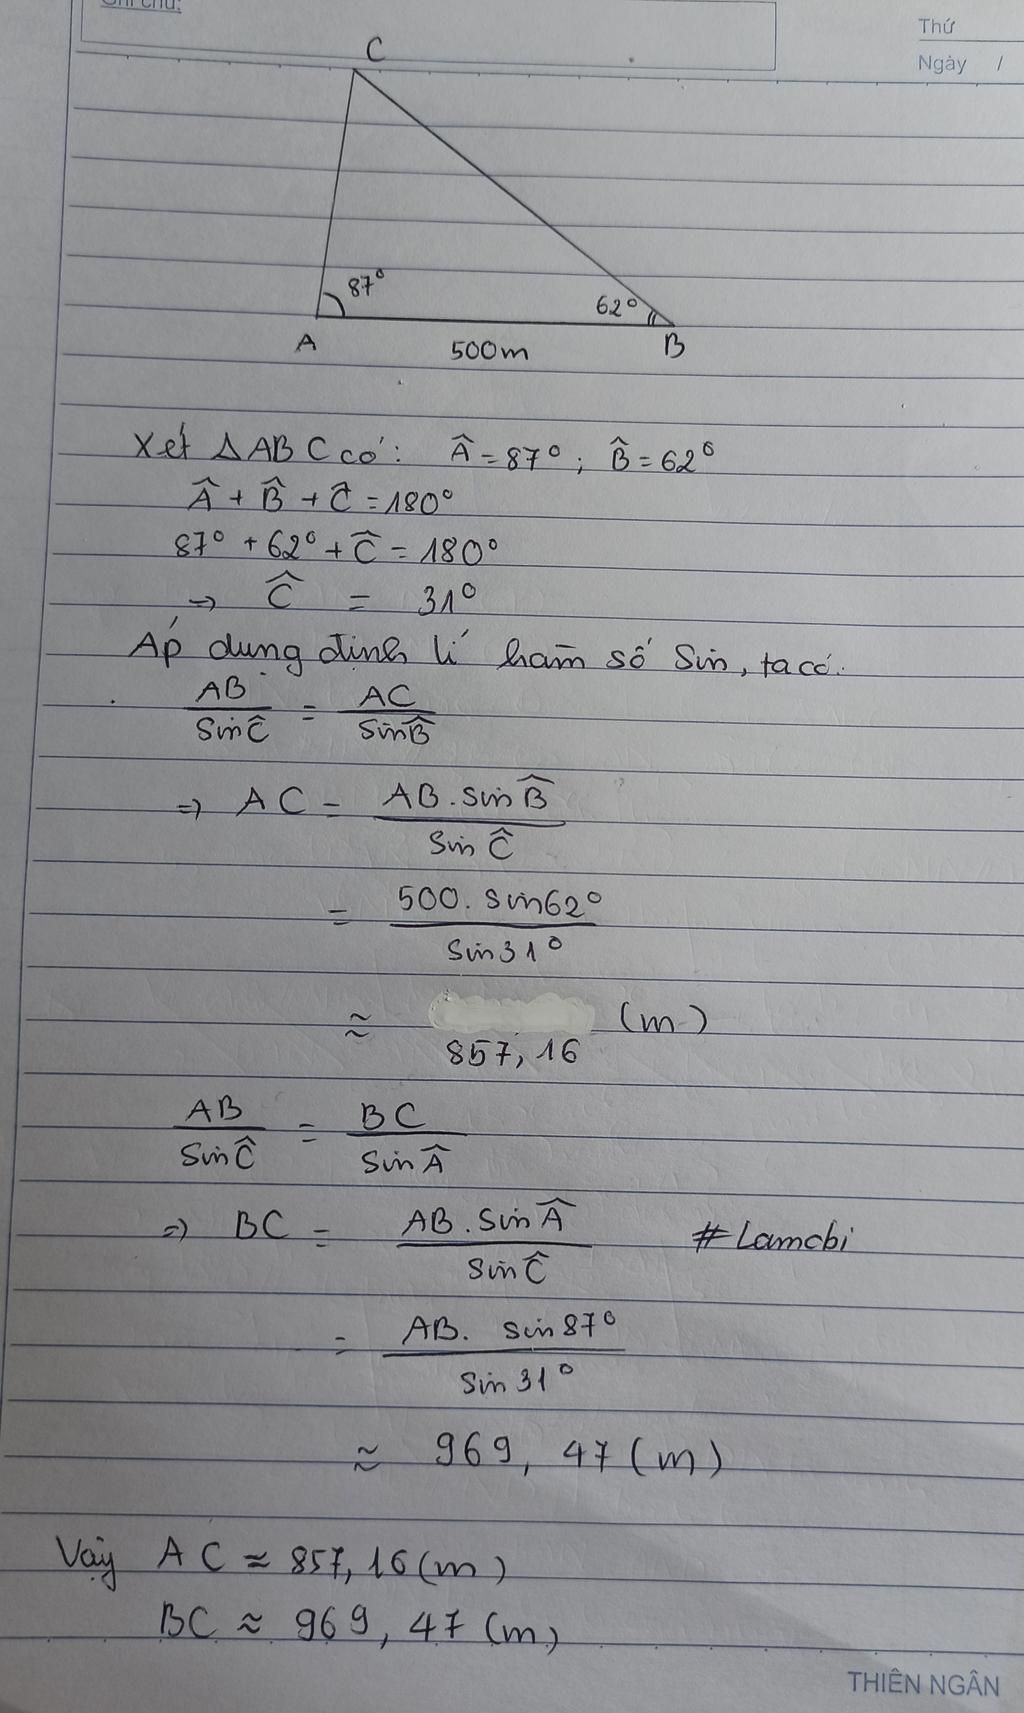 Ghi chú:
Thứ
Ngày /
C
87°
62°
A
500m
B
Xét ΔABC có: Â = 87°; B̂ = 62°
Â + B̂ + Ĉ = 180°
87° + 62° + Ĉ = 180°
⇒ Ĉ = 31°
Áp dụng định lí hàm số Sin, ta có.
AB/Sin Ĉ = AC/Sin B̂
⇒ AC = AB.Sin B̂/Sin Ĉ
= 500.Sin62°/Sin31°
≈ 857,16 (m)
AB/Sin Ĉ = BC/Sin Â
⇒ BC = AB.Sin Â/Sin Ĉ
#Lamcbi
= AB. Sin87°/Sin31°
≈ 969,47 (m)
Vậy AC ≈ 857,16 (m)
BC ≈ 969,47 (m)
THIÊN NGÂN